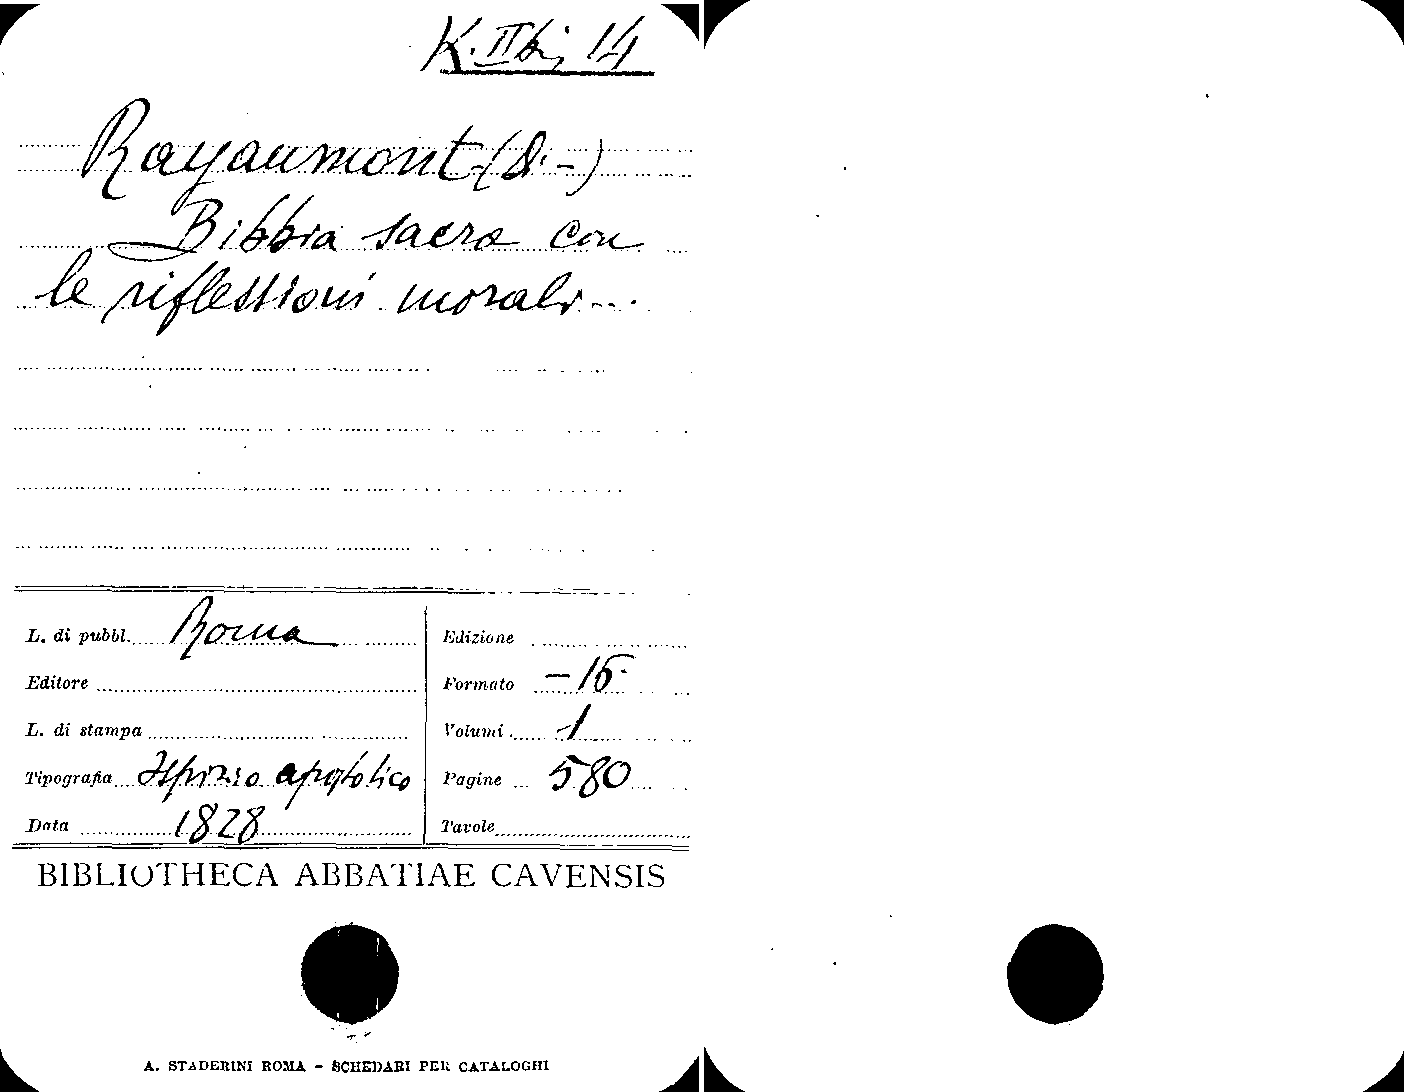 K. II bis 14
Rayaumont (S. -)
Bibbia sacra con
le riflessioni morali ....
L. di pubbl. Roma
Edizione
Editore
Formato -16.
L. di stampa
Volumi 1
Tipografia Ospizio apostolico
Pagine 580
Data 1828
Tavole
BIBLIOTHECA ABBATIAE CAVENSIS
A. STADERINI ROMA - SCHEDARI PER CATALOGHI